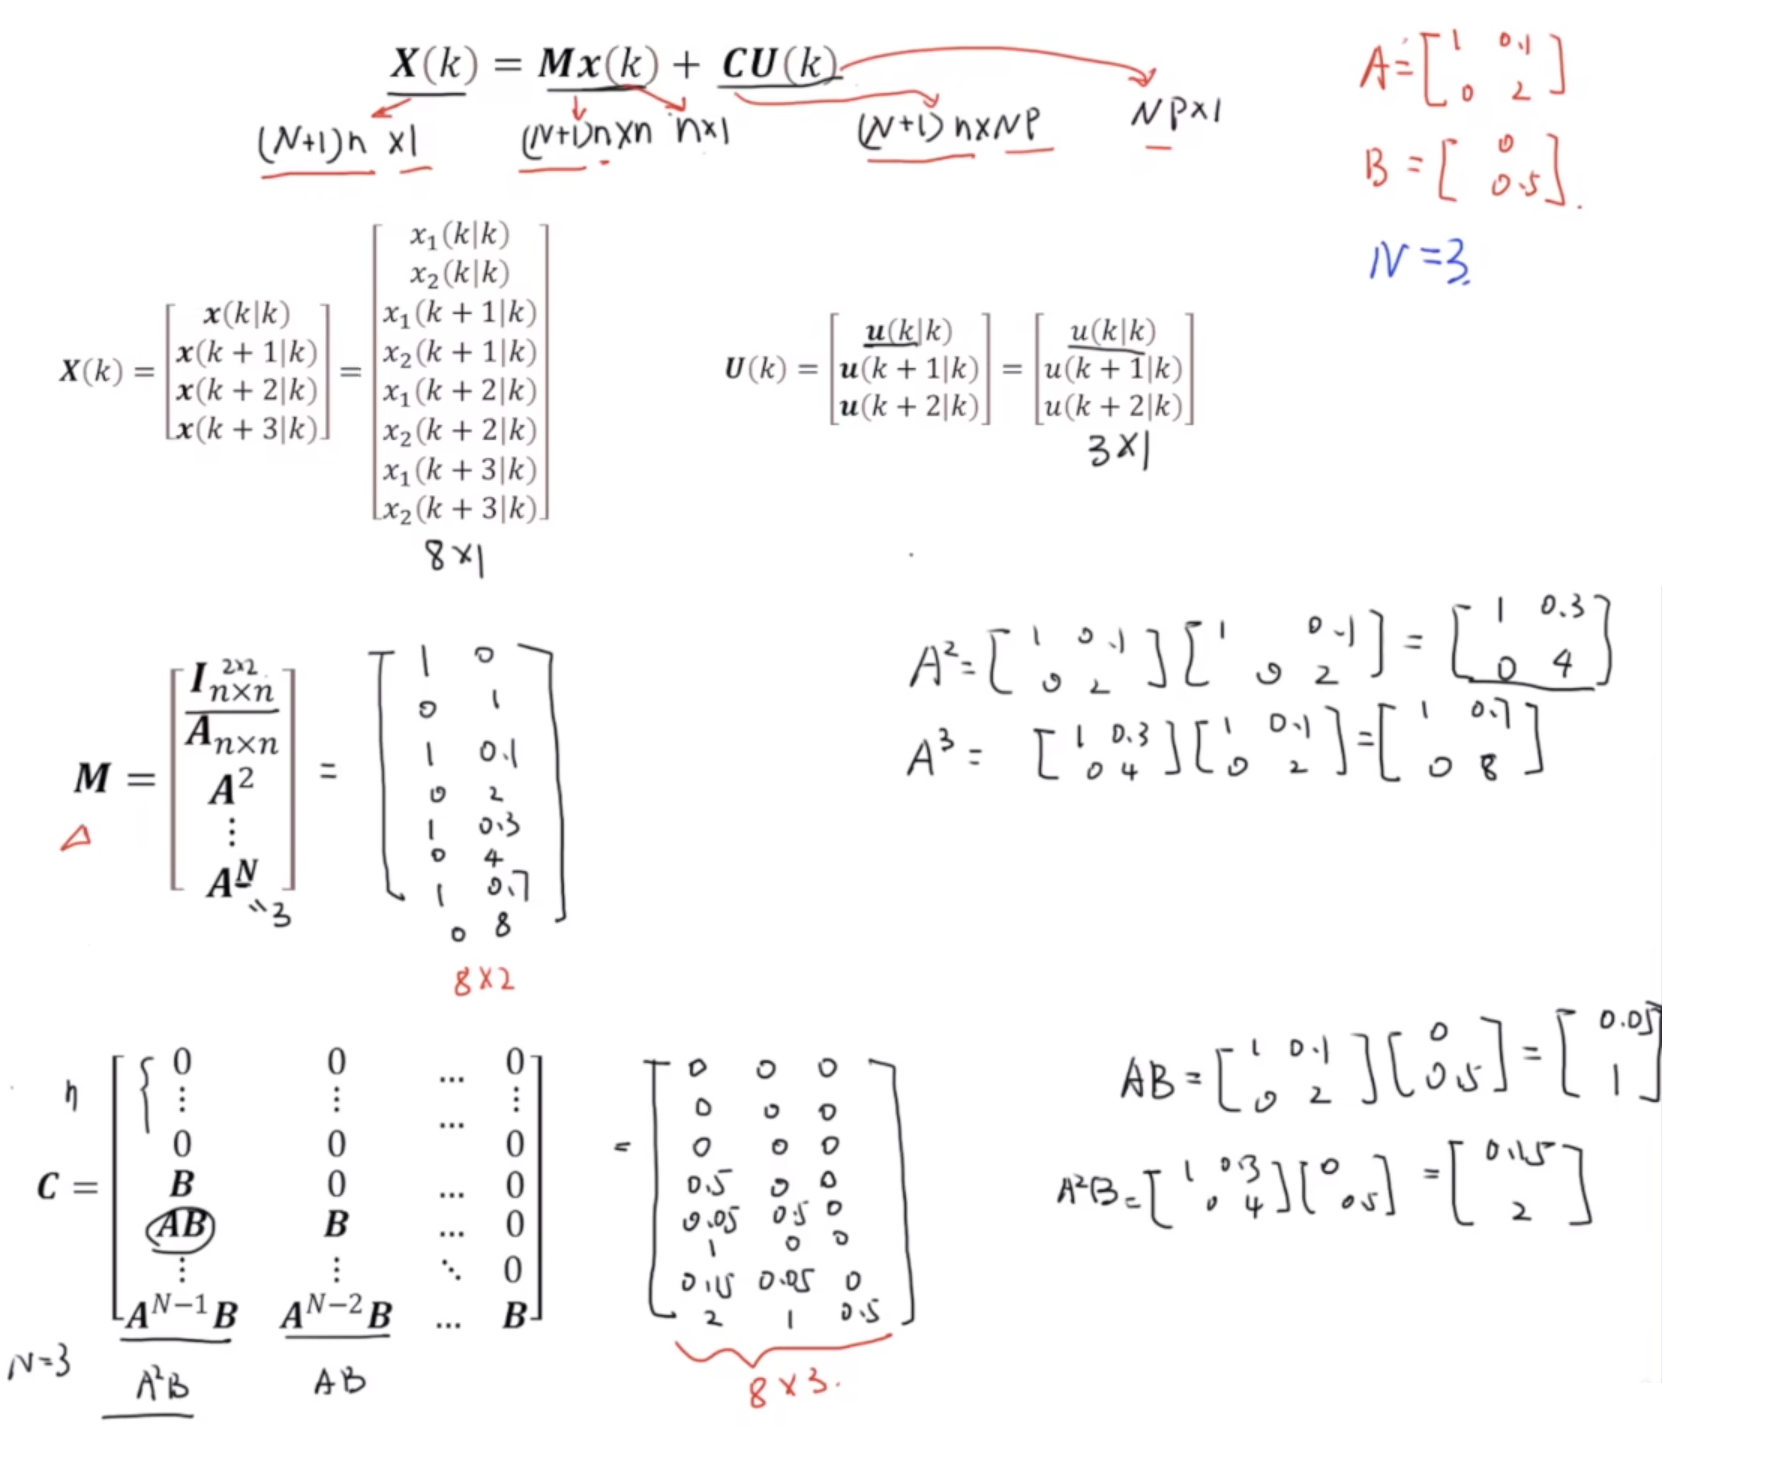 X(k) = Mx(k) + CU(k)
(N+1)n ×1 (N+1)n×n n×1 (N+1)n×NP NP×1
A = [1 0.1
0 2]
B = [0
0.5].
N=3.
X(k) = [x(k|k)
x(k + 1|k)
x(k + 2|k)
x(k + 3|k)] = [x₁(k|k)
x₂(k|k)
x₁(k + 1|k)
x₂(k + 1|k)
x₁(k + 2|k)
x₂(k + 2|k)
x₁(k + 3|k)
x₂(k + 3|k)]
8×1
U(k) = [u(k|k)
u(k + 1|k)
u(k + 2|k)] = [u(k|k)
u(k + 1|k)
u(k + 2|k)]
3×1
M = [I n×n 2×2
A n×n
A²
⋮
A^N] = [1 0
0 1
1 0.1
0 2
1 0.3
0 4
1 0.7
0 8]
"3
8×2
A² = [1 0.1
0 2] [1 0.1
0 2] = [1 0.3
0 4]
A³ = [1 0.3
0 4] [1 0.1
0 2] = [1 0.7
0 8]
n
C = [0 0 ... 0
⋮ ⋮ ... ⋮
0 0 0
B 0 ... 0
AB B ... 0
⋮ ⋮ ⋱ 0
A^(N−1)B A^(N−2)B ... B]
N=3 A²B AB
= [0 0 0
0 0 0
0 0 0
0.5 0 0
0.05 0.5 0
1 0 0
0.15 0.05 0
2 1 0.5]
8×3.
AB = [1 0.1
0 2] [0
0.5] = [0.05
1]
A²B = [1 0.3
0 4] [0
0.5] = [0.15
2]